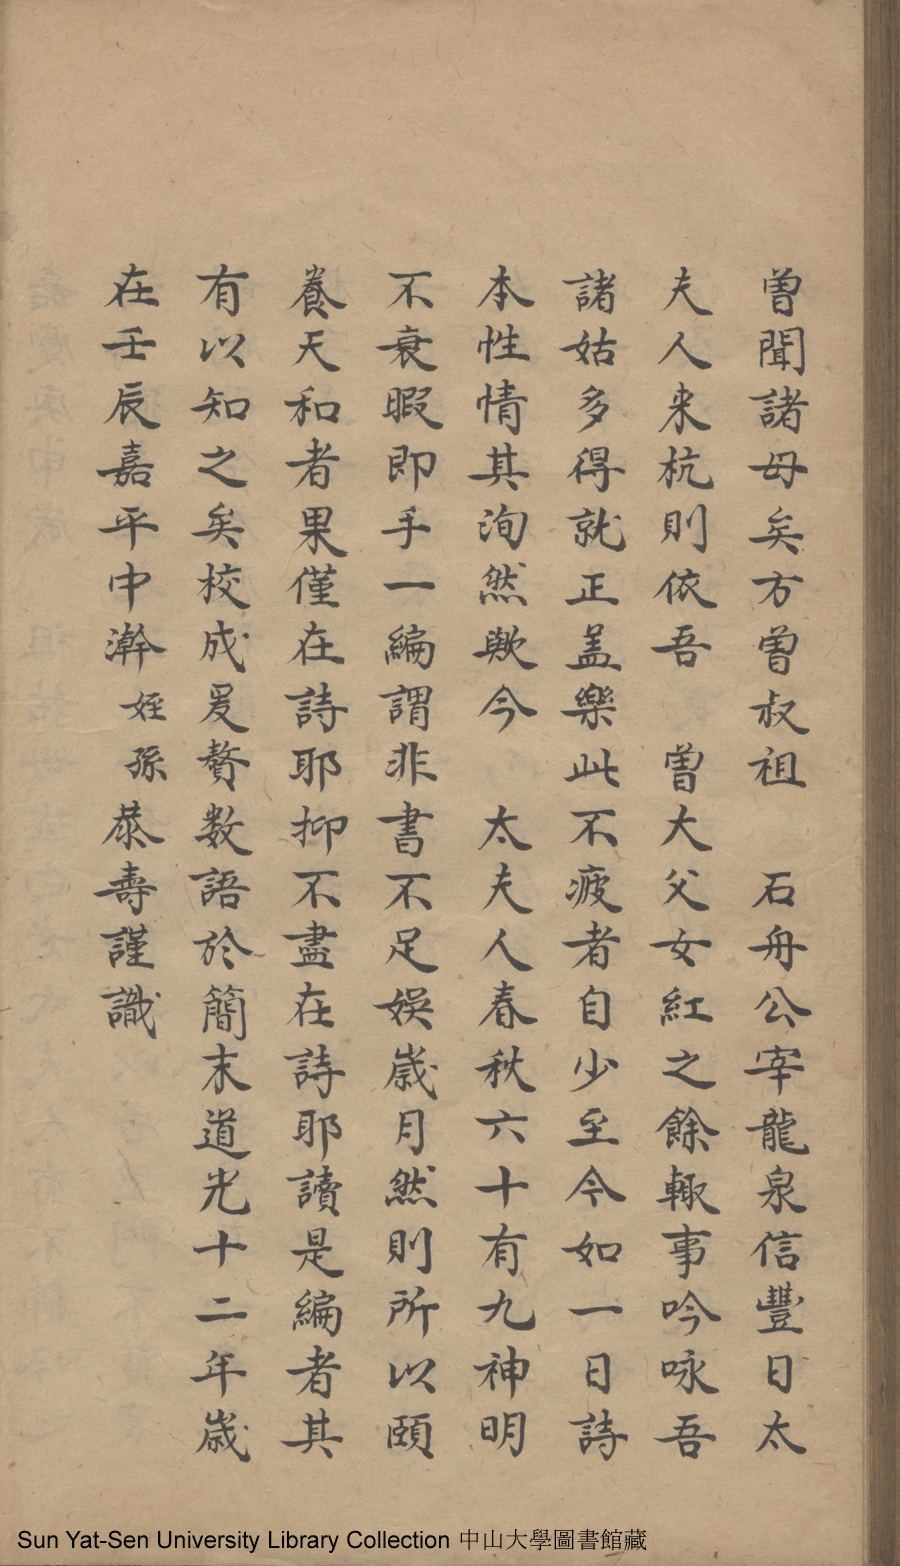 曾聞諸母矣方曾叔祖　石舟公宰龍泉信豐日太
夫人来杭則依吾　曾大父女紅之餘輙事吟咏吾
諸姑多得就正蓋樂此不疲者自少至今如一日詩
本性情其洵然歟今　太夫人春秋六十有九神明
不衰暇即手一編謂非書不足娛歲月然則所以頤
養天和者果僅在詩耶抑不盡在詩耶讀是編者其
有以知之矣校成爰贅數語於簡末道光十二年歲
在壬辰嘉平中澣姪孫恭壽謹識
Sun Yat-Sen University Library Collection 中山大學圖書館藏